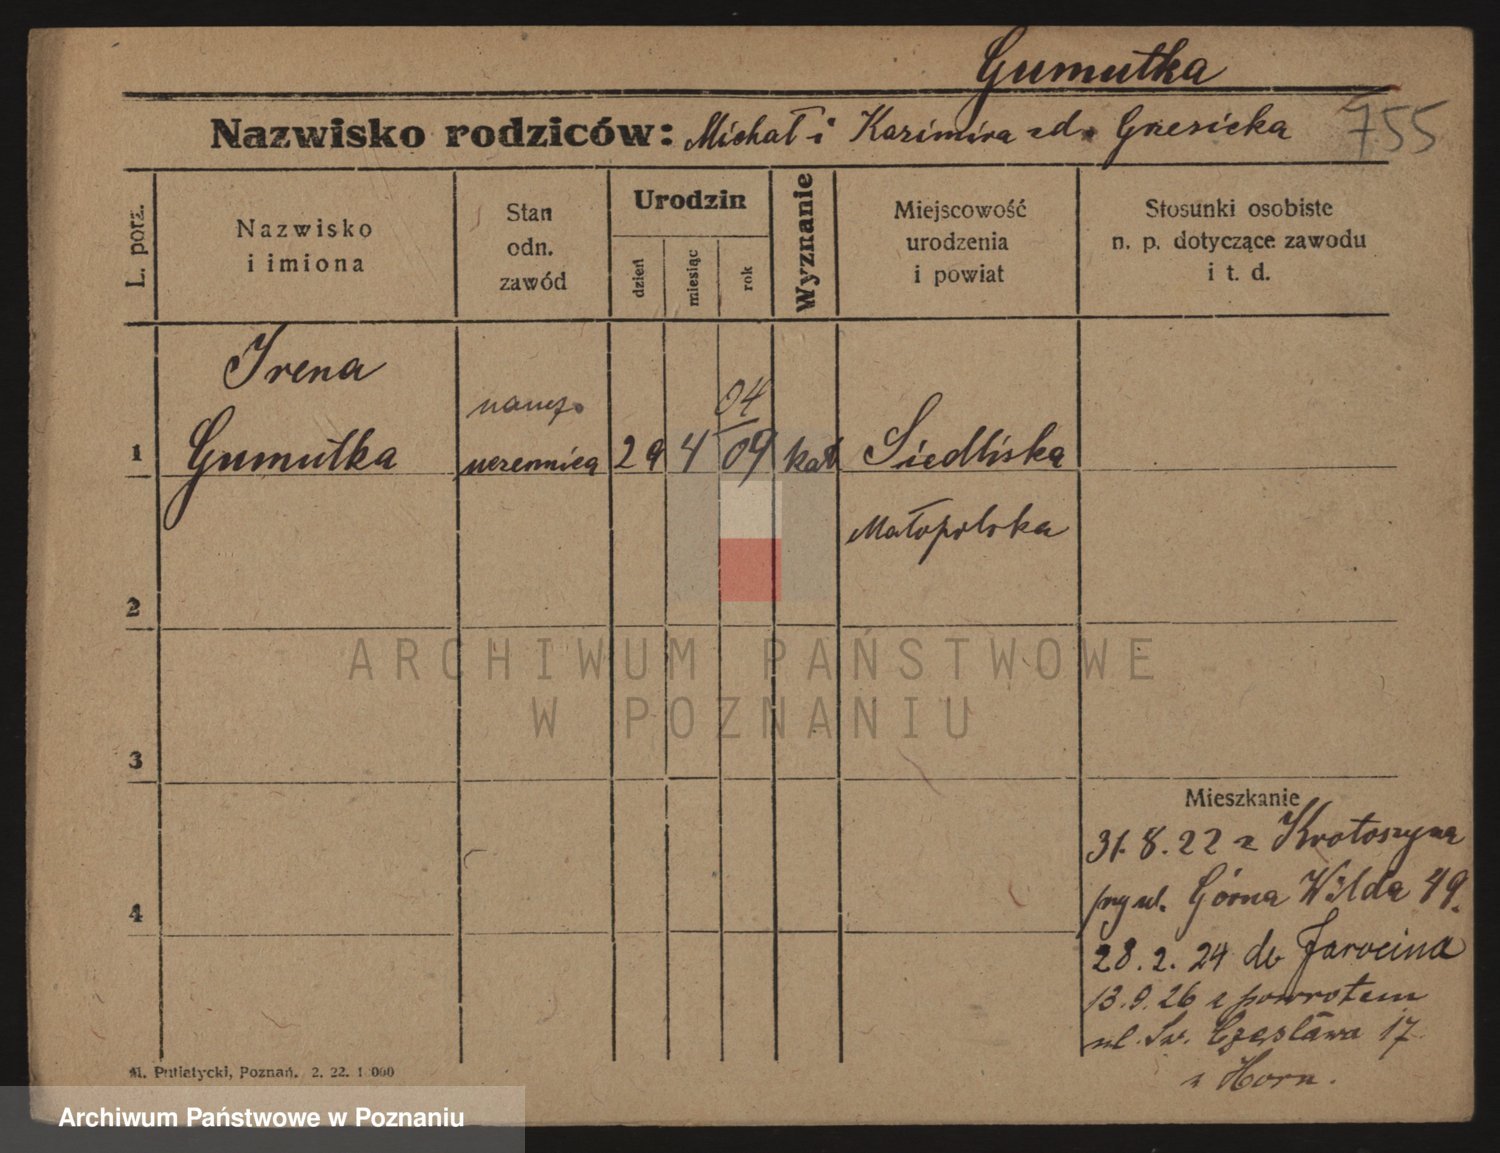 Gumułka
Nazwisko rodziców: Michał i Kazimira zd. Grzesicka 755
L. porz.
Nazwisko
i imiona
Stan
odn.
zawód
Urodzin
dzień
miesiąc
rok
Wyznanie
Miejscowość
urodzenia
i powiat
Stosunki osobiste
n. p. dotyczące zawodu
i t. d.
Irena
naucz.
04
1 Gumułka uczennica 29 4 09 kat Siedliska
Małopolska
2
ARCHIWUM PAŃSTWOWE
W POZNANIU
3
Mieszkanie
31.8.22 z Krotoszyna
przy ul. Górna Wilda 49.
4
28.2.24 do Jarocina
13.9.26 z powrotem
ul. Św. Czesława 17
z Horn.
M. Putiatycki, Poznań. 2. 22. 1 000
Archiwum Państwowe w Poznaniu